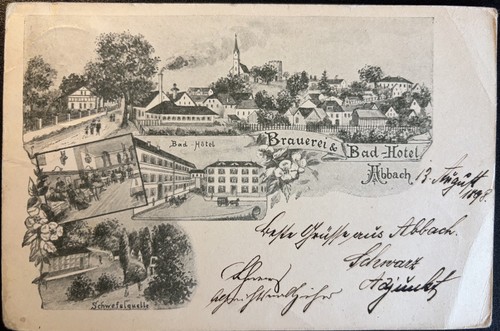 Bad-Hôtel
Brauerei & Bad-Hotel
Abbach
13. August
1898.
Schwefelquelle
Beste Grüsse aus Abbach.
Schwarz
Adjunkt